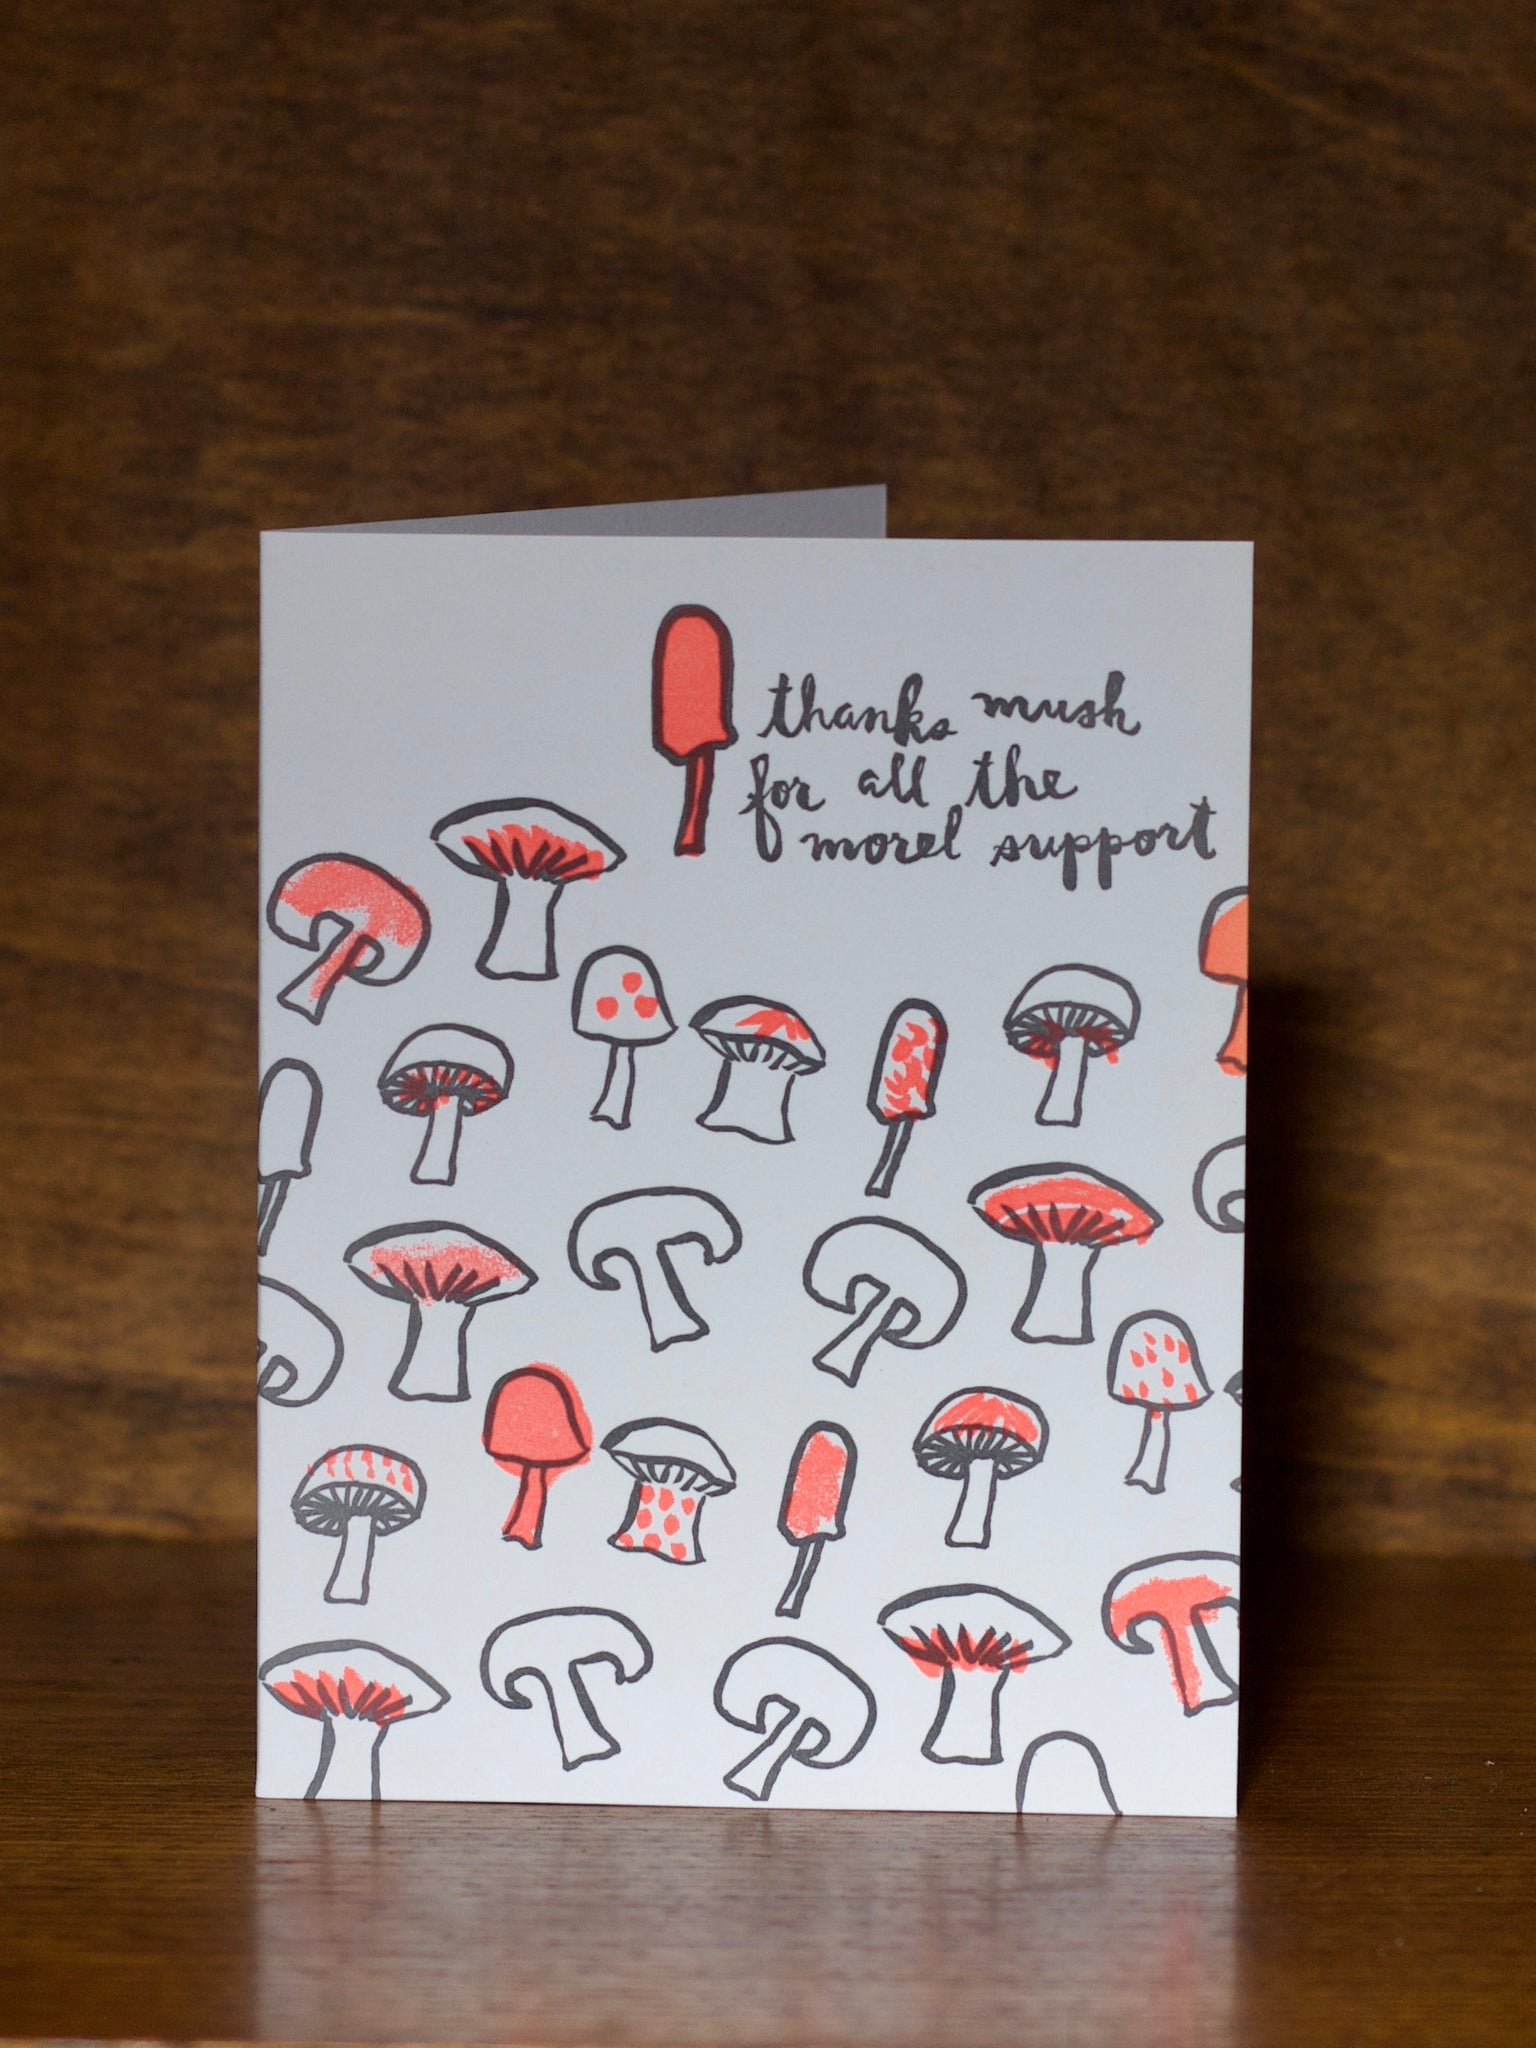 thanks mush
for all the
morel support